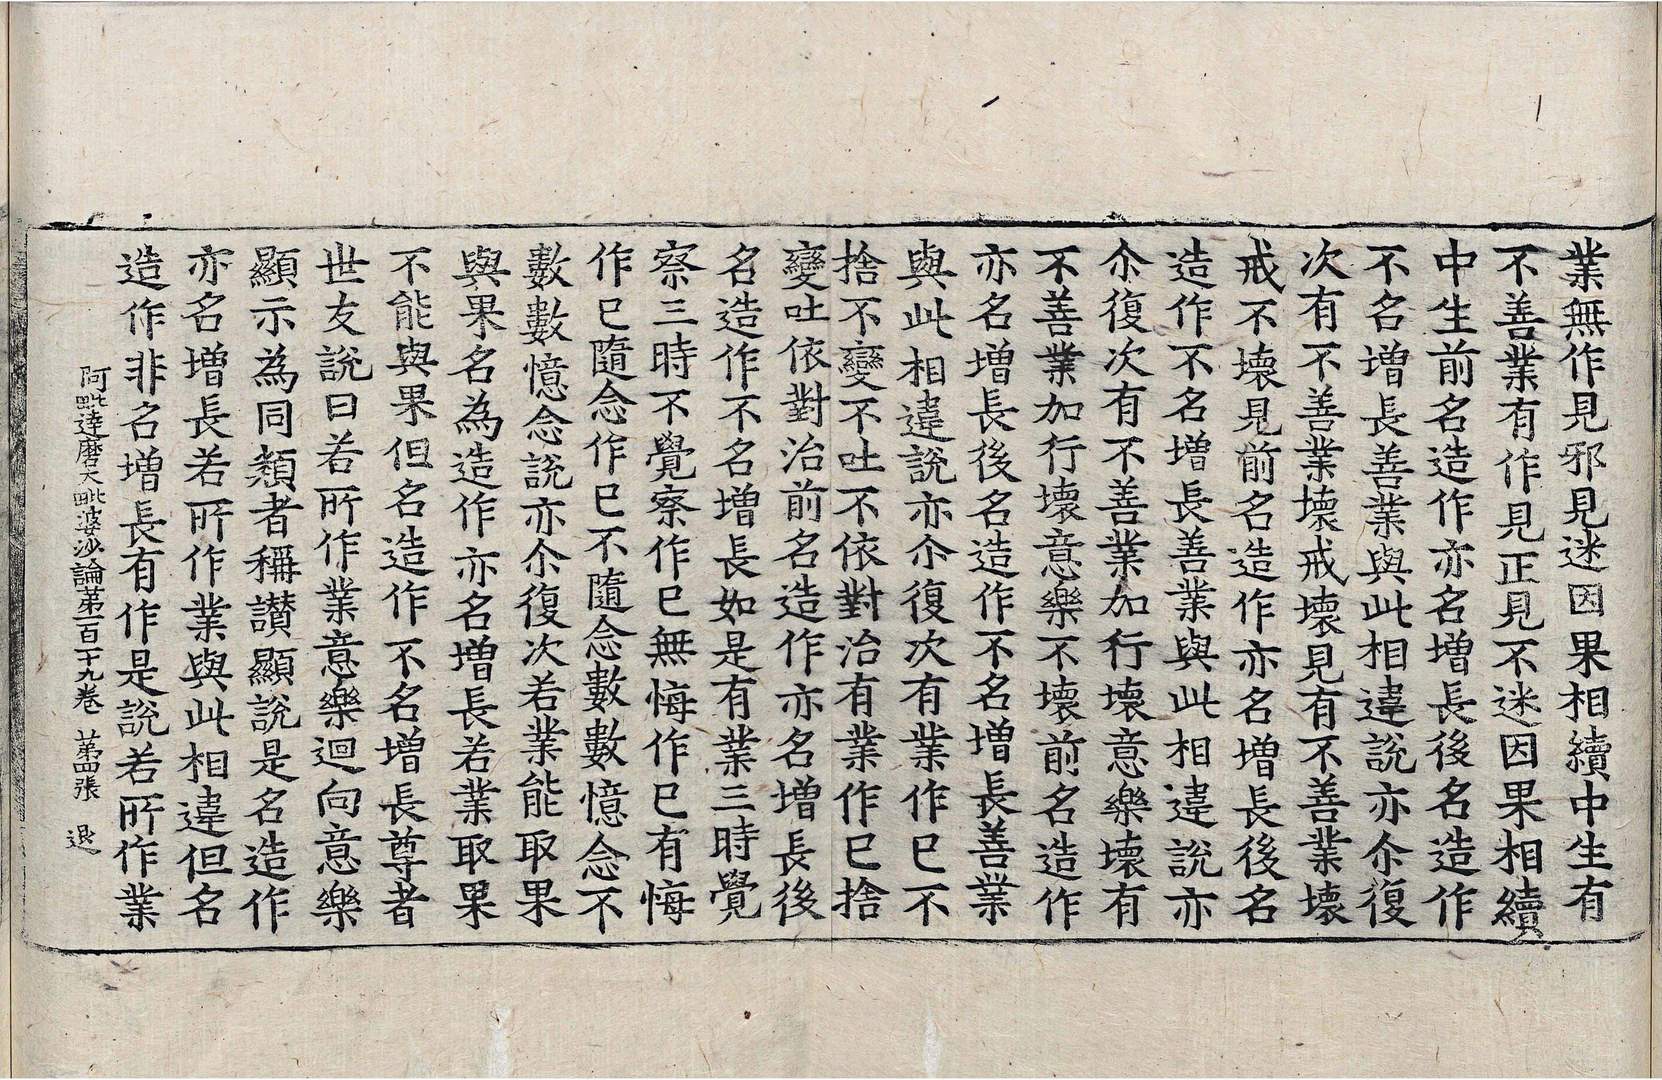 業無作見邪見迷因果相續中生有
不善業有作見正見不迷因果相續
中生前名造作亦名增長後名造作
不名增長善業與此相違說亦尒復
次有不善業壞戒壞見有不善業壞
戒不壞見前名造作亦名增長後名
造作不名增長善業與此相違說亦
尒復次有不善業加行壞意樂壞有
不善業加行壞意樂不壞前名造作
亦名增長後名造作不名增長善業
與此相違說亦尒復次有業作已不
捨不變不吐不依對治有業作已捨
變吐依對治前名造作亦名增長後
名造作不名增長如是有業三時覺
察三時不覺察作已無悔作已有悔
作已隨念作已不隨念數數憶念不
數數憶念說亦尒復次若業能取果
與果名為造作亦名增長若業取果
不能與果但名造作不名增長尊者
世友說曰若所作業意樂迴向意樂
顯示為同類者稱讃顯說是名造作
亦名增長若所作業與此相違但名
造作非名增長有作是說若所作業
阿毗達磨大毗婆沙論第一百十九卷 第四張 退